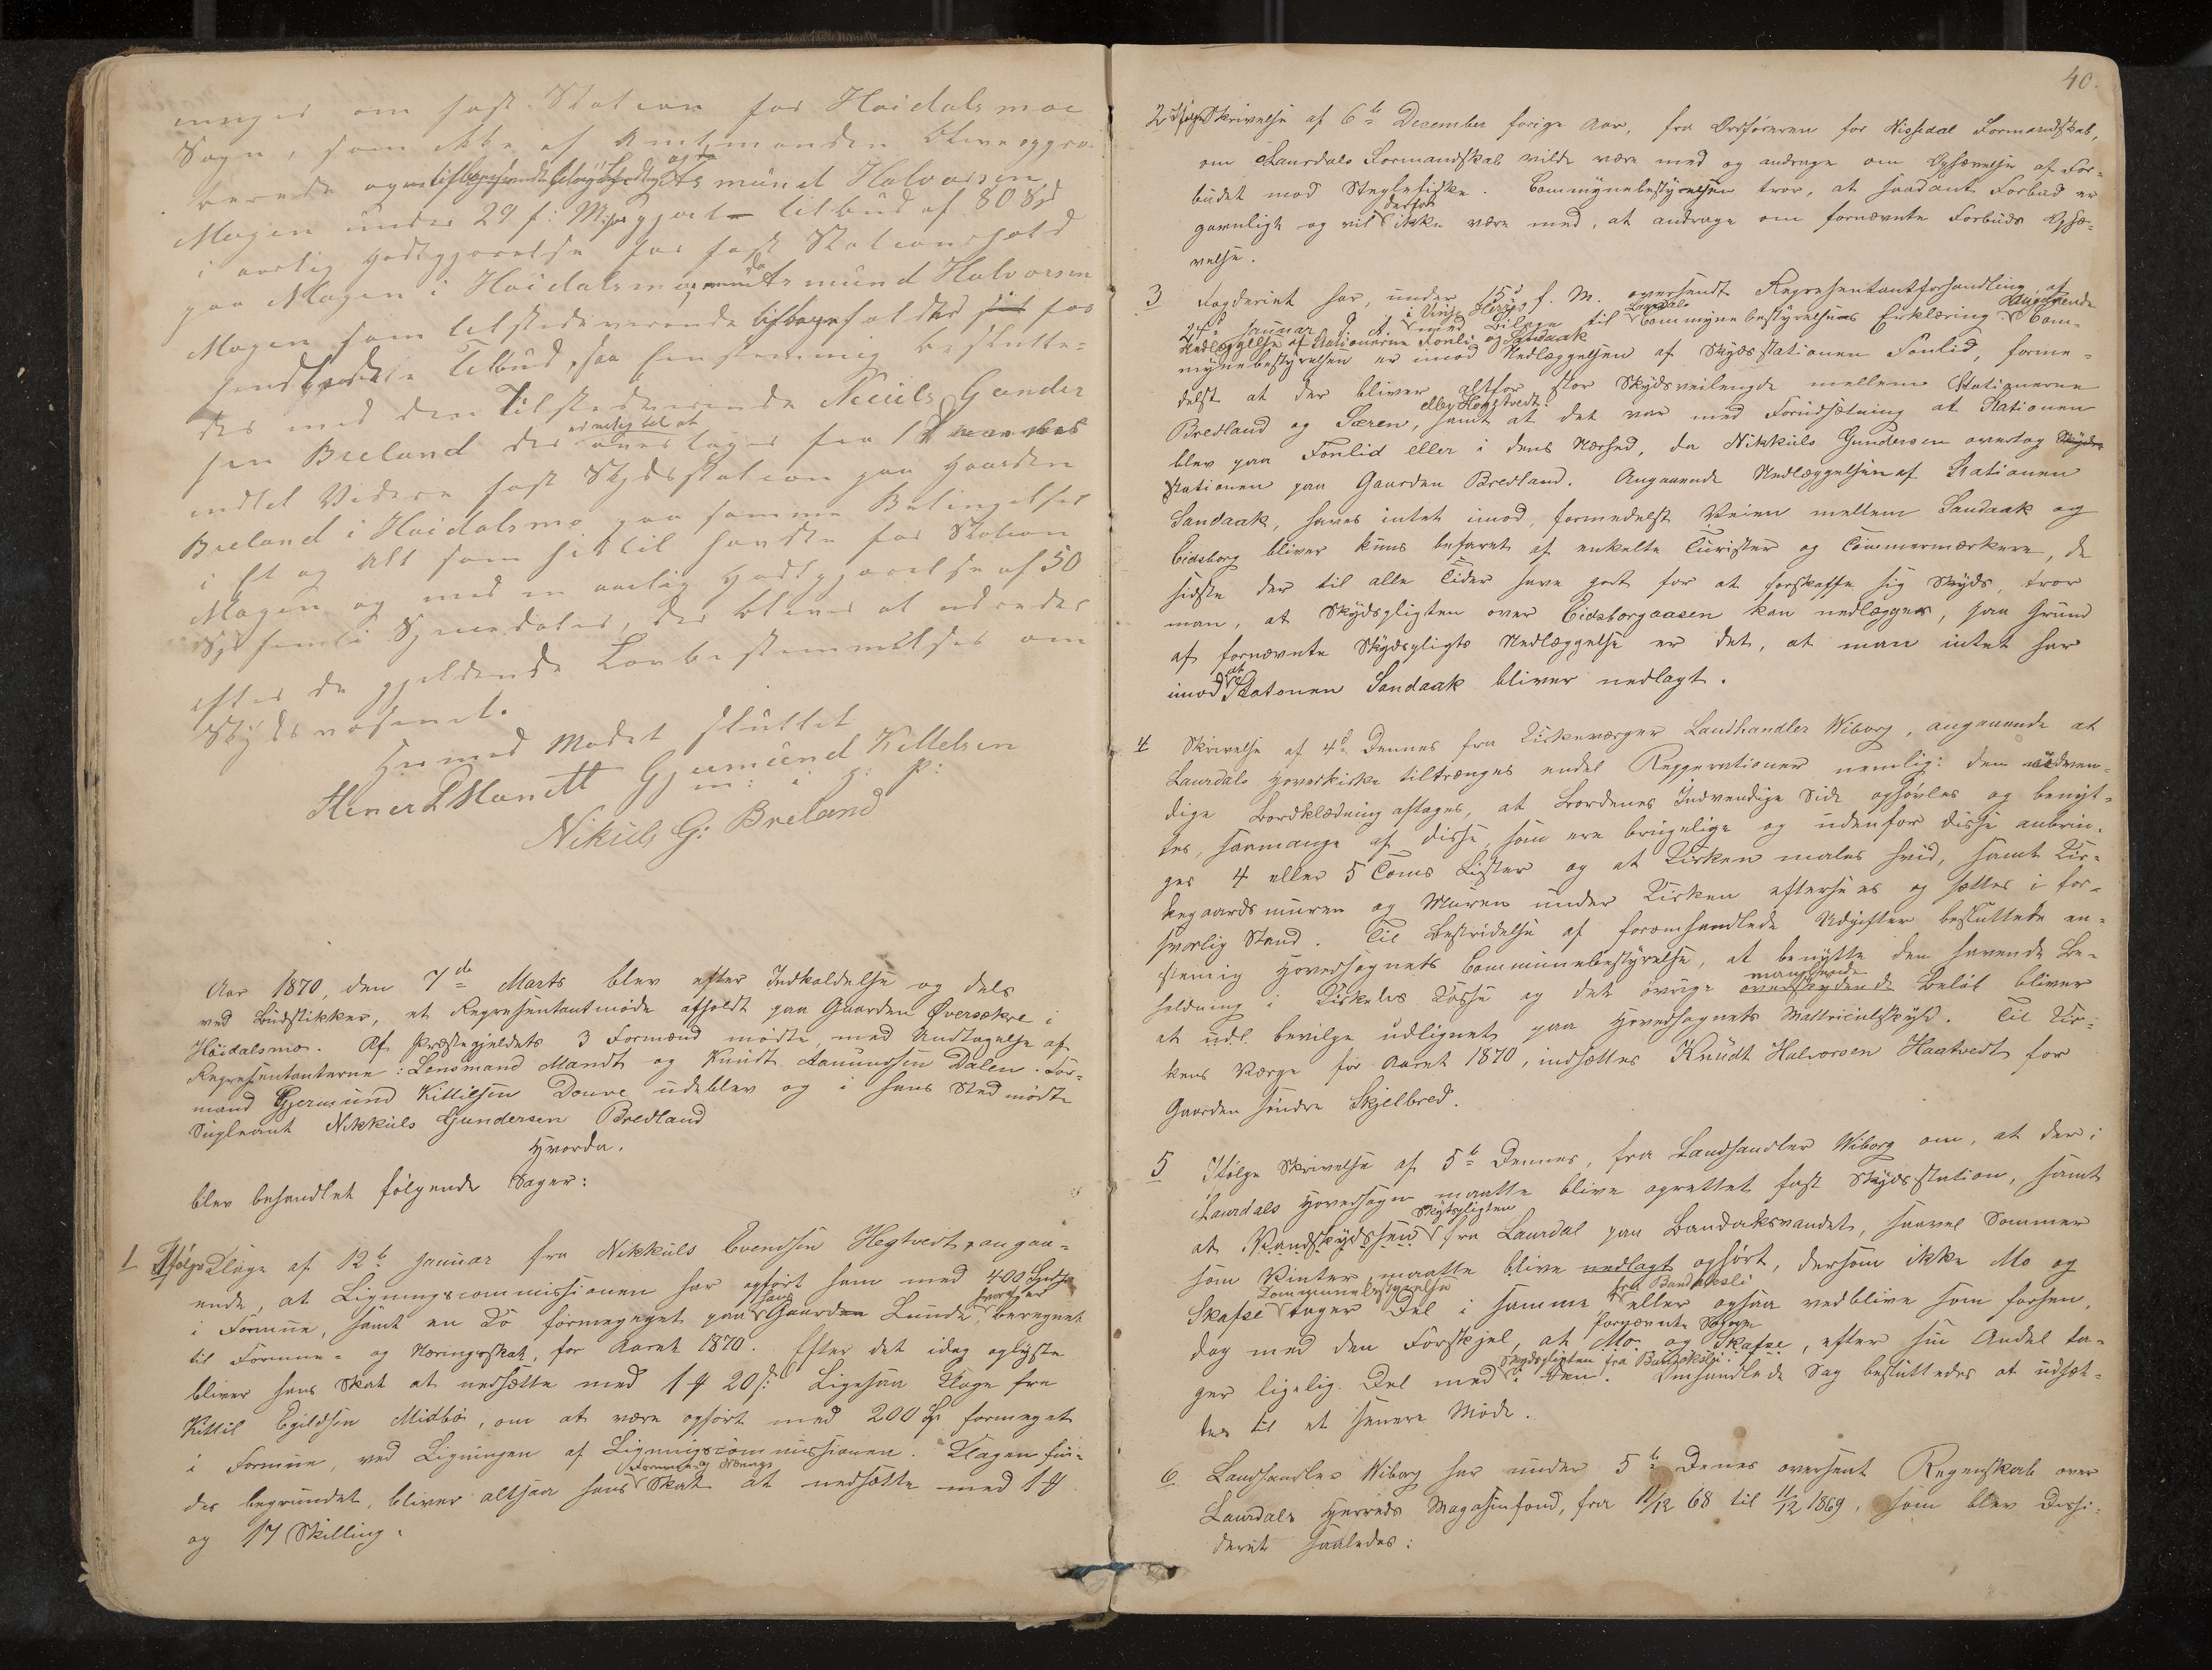 minger om fast Station for Høidalsmoe
Sogn, som ikke af Amtmanden blive appro
berede og Asmund Halvorsen
Mogen under 29 f: M: gjort tilbud af 80 Spd
i aarlig Godtgjørelse for fast Stationshold
paa Mogen i Høidalsmo, og da Asmund Halvorsen
Mogen som tilstedeværende for
Tilbud, saa eenstemmig beslutte-
des med den Tilstedeværende Niculs Gunder
sen Breland der antages fra 1
indtil Videre fast Skydsstation paa Gaarden
Breland i Høidalsmo paa samme Betingelser
i Et og Alt som hidtil havdte for Station
Mogen og med en aarlig Godtgjørelse af 50
Spd femti Speciedaler, der bliver at udredes
efter de gjeldende Lovbestemmelser om
Skydsvæsenet.
Hermed Mødet sluttet
Stener L Mandt Gjermund Kittelsen
m: i P:
Nikuls G: Breland
Aar 1870, den 7de Marts blev efter Indkaldelse og dels
ved Budstikker, et Repræsentantmøde afholdt paa Gaarden Øversækre i
Høidalsmo. Af Præstegjeldets 3 Formænd mødte, med Undtagelse af
Repræsentanterne: Lensmand Mandt og Knudt Aanundsen Dalen. For-
mand Gjermund Kittilsen Douve udeblev og i hans Sted mødte
Supleant Nikkuls Gundersen Bredland
Hvorda,
blev behandlet følgende Sager:
1 Ifølge Klage af 12te Januar fra Nikkuls Evendsen Hegtvedt, angaa-
ende, at Ligningscommissionen har opført ham med 400 Spd
i Formue, samt en Ko formeget paa hans Gaarden Lunde, hvoraf er beregnet
til Formue- og Næringsskat, for Aaret 1870. Efter det idag oplyste
bliver hans Skat at nedsætte med 1 20 ß. Ligesaa Klage fra
Kittil Egildsen Midbø, om at være opført med 200 formeget
i Formue, ved Ligningen af Ligningscommissionen. Klagen fin-
des begrundet, bliver altsaa hans Formue- og Nærings Skat at nedsætte med 1
og 17 Skilling.
40.
2 Ifølge Skrivelse af 6te December forige Aar, fra Ordføreren for Nissedal Formandskab,
om Laurdals Formandskab vilde være med og andrage om Ophævelse af For-
budet mod Steglefiske. Communebestyrelsen tror, at saadant Forbud er
gavnligt og vil derfor ikke være med, at andrage om fornævnte Forbuds Ophæ-
velse.
3 Fogderiet har, under 15d f. M. oversendt Repræsentantforhandling af
24d Januar d. A. i Vinje Herred med Bilage til Laurdals Communebestyrelses Erklæring angaaende
Nedlæggelse af Stationerne Fonli og Sandaak Com-
munebestyrelsen er imod Nedlæggelsen af Skydsstationen Fonlid, forme-
delst at der bliver altfor stor Skydsveilengde mellem Stationerne
Bredland og Særen, eller Høgstvedt samt at det var med Forudsætning at Stationen
blev paa Fonlid eller i dens Nærhed, da Nikkuls Gundersen overtog Skyds-
stationen paa Gaarden Bredland. Angaaende Nedlæggelsen af Stationen
Sandaak, haves intet imod, formedelst Veien mellem Sandaak og
Eidsborg bliver kuns befaret af enkelte Turister og Tømmermærkere, de
sidste der til alle Tider have godt for at forskaffe sig Skyds, tror
man, at Skydspligten over Eidsborgaasen kan nedlægges, paa Grund
af fornævnte Skydspligts Nedlæggelse er det, at man intet har
imod at Statonen Sandaak bliver nedlagt.
4 Skrivelse af 4de Dennes fra Kirkeværger Landhandler Wiborg, angaaende at
Laurdals Hovedkirke tiltrænges endel Repperationer nemlig: den udven-
dige Bordklædning aftages, at Bordenes Indvendige Side ophøvles og benyt-
tes, saamange af disse, som ere brugelige og udenfor disse anbrin-
ges 4 eller 5 Toms Lister og at Kirken males hvid, samt Kir-
kegaardsmuren og Muren under Kirken eftersees og sættes i for-
svarlig Stand. Til Bestridelse af foromhandlede Udgifter besluttede en-
stemig Hovedsognets Communebestyrelse, at benytte den havende Be-
holdning i Kirkeles Kasse og det øvrige overskydende manglende Beløb bliver
at udl. bevilge udlignet paa Hovedsognets Mattriculskyld. Til Kir-
kens Værge for Aaret 1870, indsættes Knudt Halvorsen Haatvedt for
Gaarden søndre Skjelbred.
5 Ifølge Skrivelse af 5te Dennes, fra Landhandler Wiborg om, at der i
Laurdals Hovedsogn maatte blive oprettet fast Skydsstation, samt
at Vandskydssen Skytspligten fra Laurdal paa Bandaksvandet, saavel Sommer
som Vinter maatte blive nedlagt ophørt, dersom ikke Mo og
Skafse Communebestyrelse tager Del i samme fra Bandaksli eller ogsaa vedblive som forhen,
dog med den Forskjel, at fornævnte Sogne Mo og Skafse, efter sin Andel ta-
ger ligelig Del med i Skydspligten fra Bandaksli den. Omhandlede Sag besluttedes at udsæt-
tes til et senere Møde.
6 Landhandler Wiborg har under 5te Denes oversent Regenskab over
Laurdals Herreds Magasinfond, fra 11/12 68 til 11/12 1869, som blev Desi-
deret saaledes: